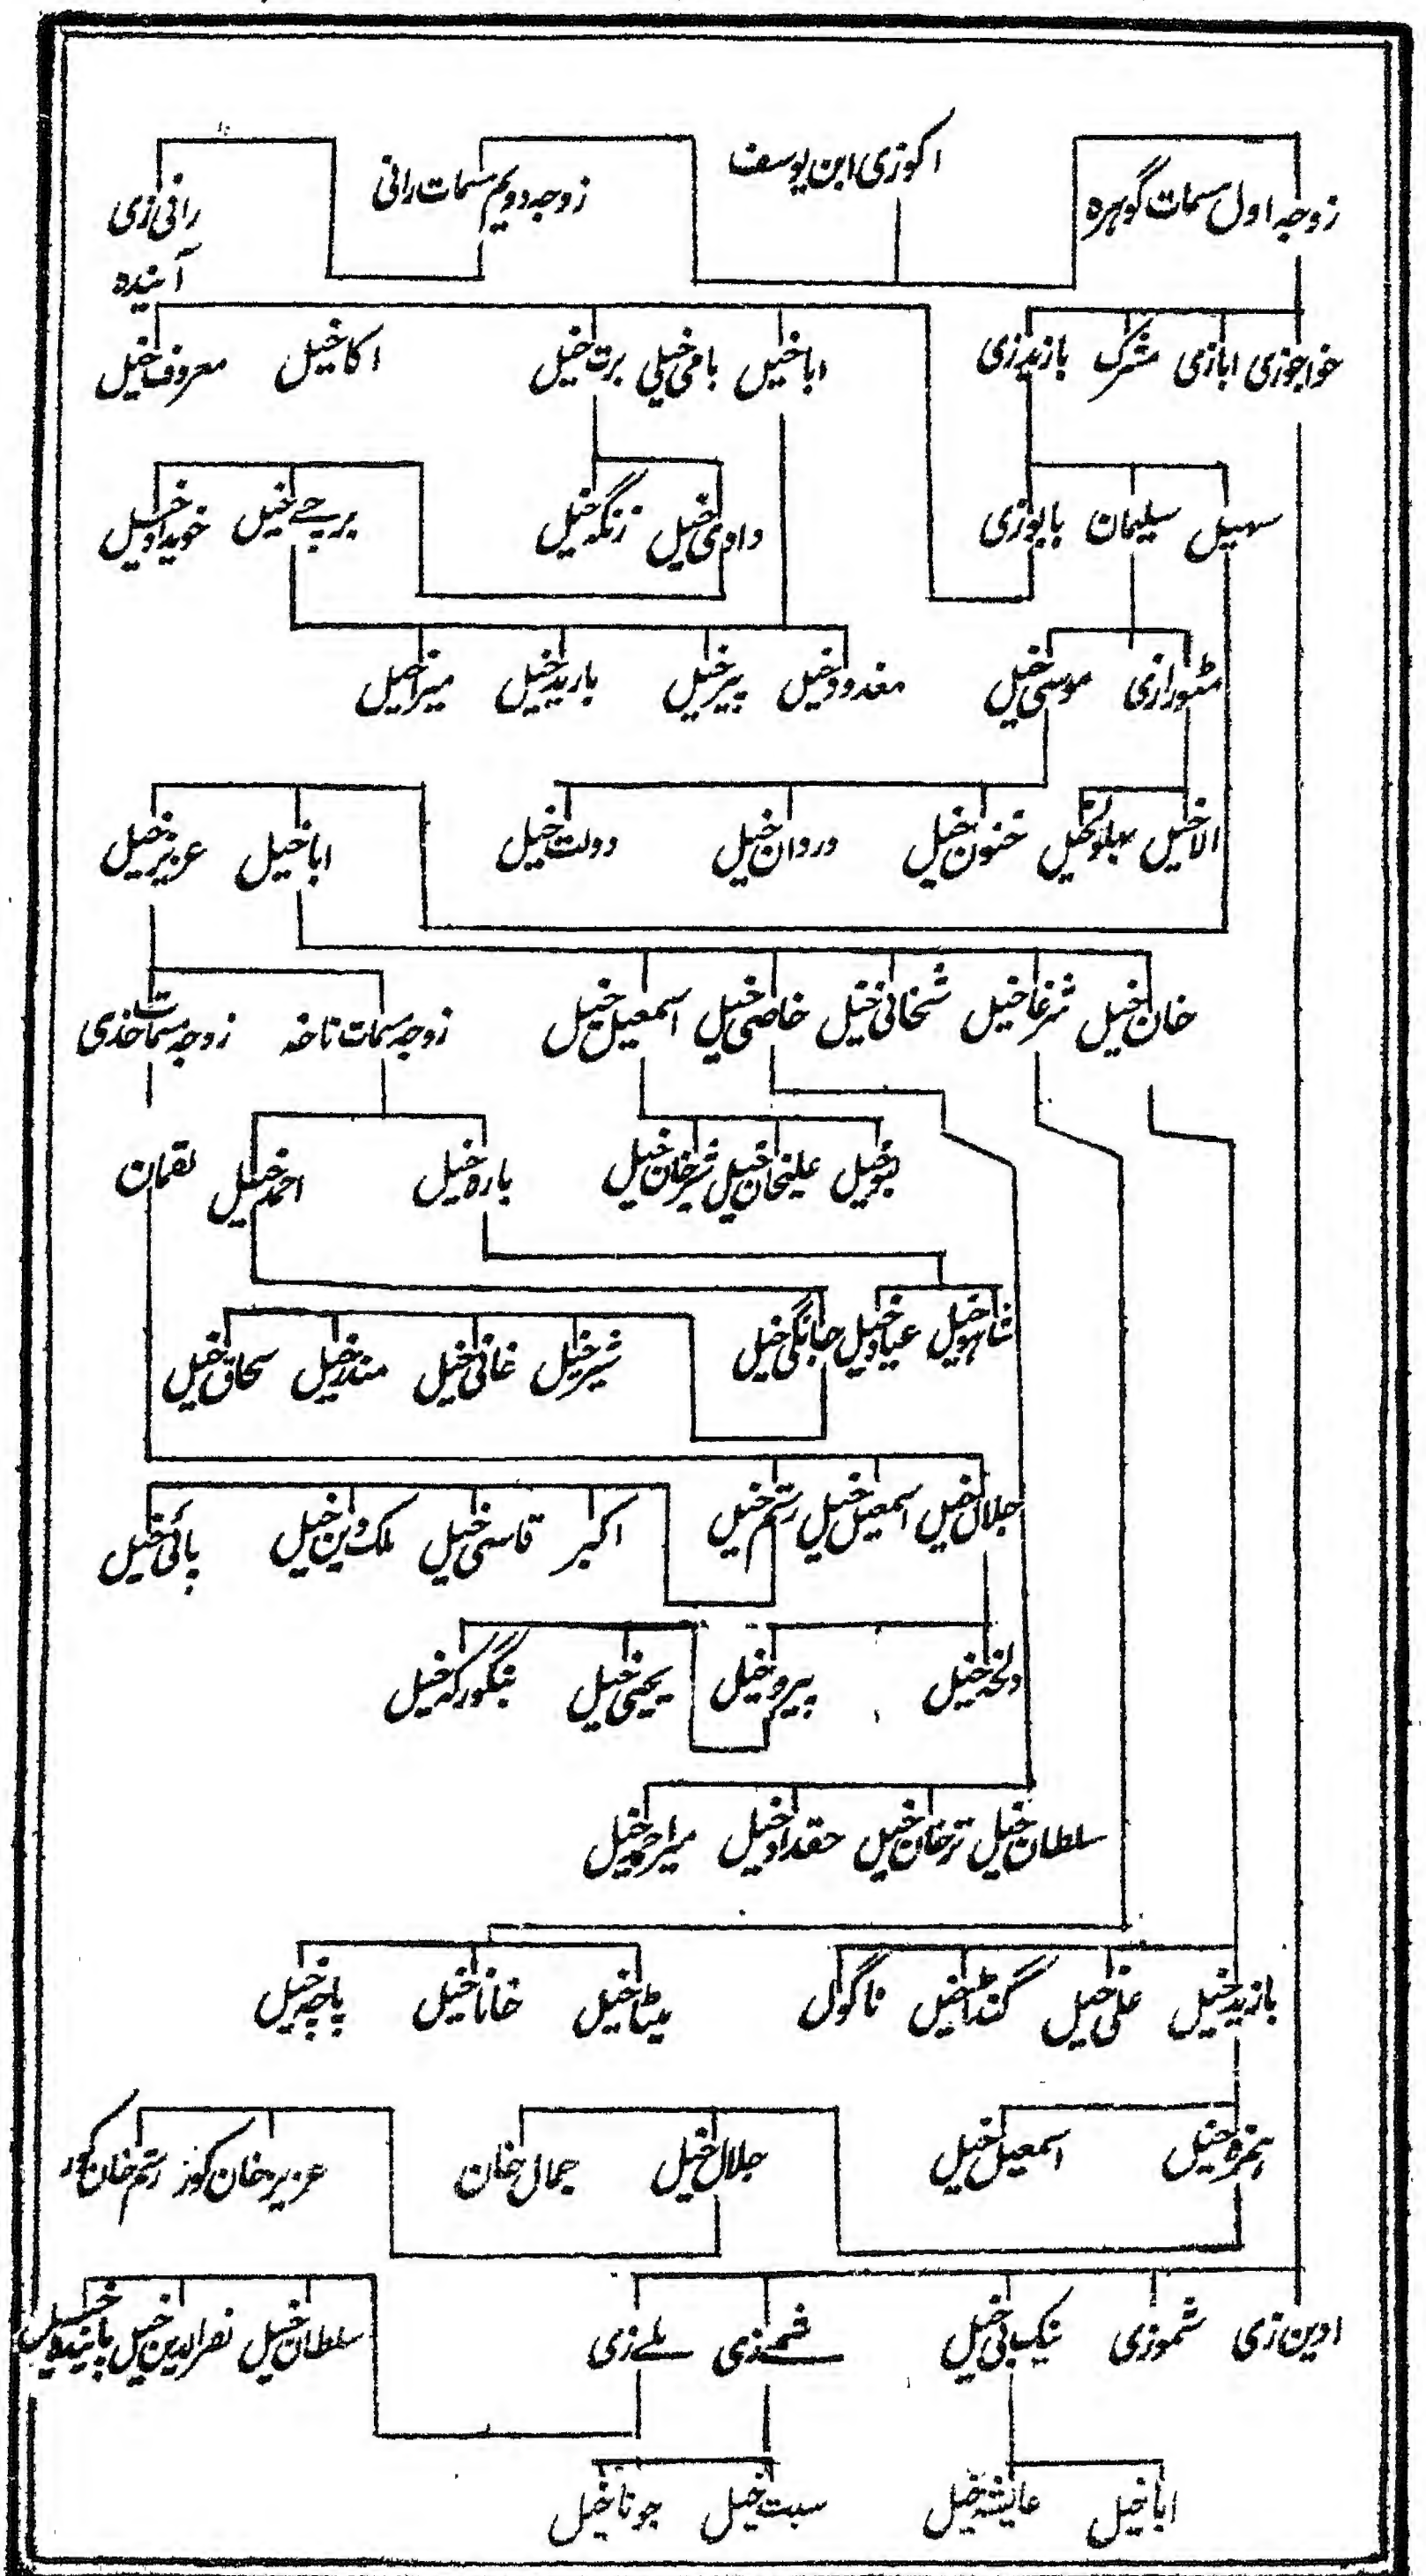 زوجہ اول سمات گوہرہ اکوزی ابن یوسف زوجہ دویم سمات رانی رانی زی
آئندہ
خواجوزی ابازی شرک بازیدزی اباخیل بامی خیل برت خیل اکاخیل معروف خیل
سہیل سلیمان بابوزی دادی خیل زنگہ خیل برچے خیل خویداد خیل
مٹورازی موسی خیل مغدود خیل پیر خیل بارید خیل میرا خیل
الاخیل بہلول خیل خنون خیل دروان خیل دولت خیل اباخیل عزیز خیل
خان خیل شرغا خیل شخانی خیل خاصی خیل اسمعیل خیل زوجہ سمات تاخہ زوجہ سمات خذی
بنو خیل علیخان خیل شیر خان خیل بارہ خیل احمد خیل لقمان
شاہو خیل عیاد خیل جانگی خیل شیر خیل غانی خیل مندر خیل سحاق خیل
جلال خیل اسمعیل خیل رستم خیل اکبر قاسی خیل ملک دین خیل پائی خیل
دلخہ خیل پیرو خیل یحیٰی خیل بنگورکہ خیل
سلطان خیل ترخان خیل حقداد خیل میراحمد خیل
بازید خیل علی خیل گنڈا خیل ناگول میٹا خیل خانا خیل پاچہ خیل
ہمزہ خیل اسمعیل خیل جلال خیل جمال خان عزیز خان کوز رستم خان کوز
ادین زی شموزی نیک بی خیل شمے زی ملے زی سلطان خیل نصرالدین خیل پایندہ خیل
اباخیل عایشہ خیل سبت خیل جونا خیل